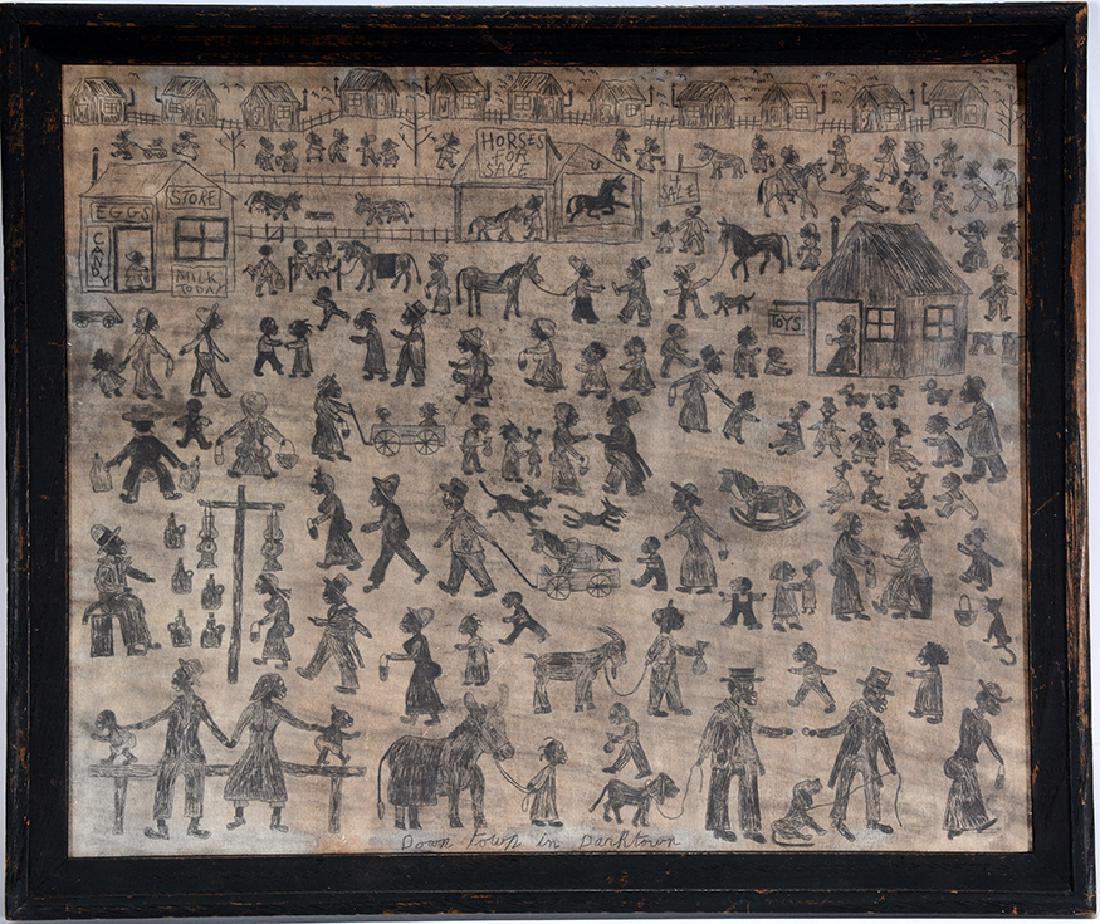 HORSES
FOR
SALE
SALE
STORE
EGGS
CANDY
MILK
TODAY
TOYS
Down town in Darktown